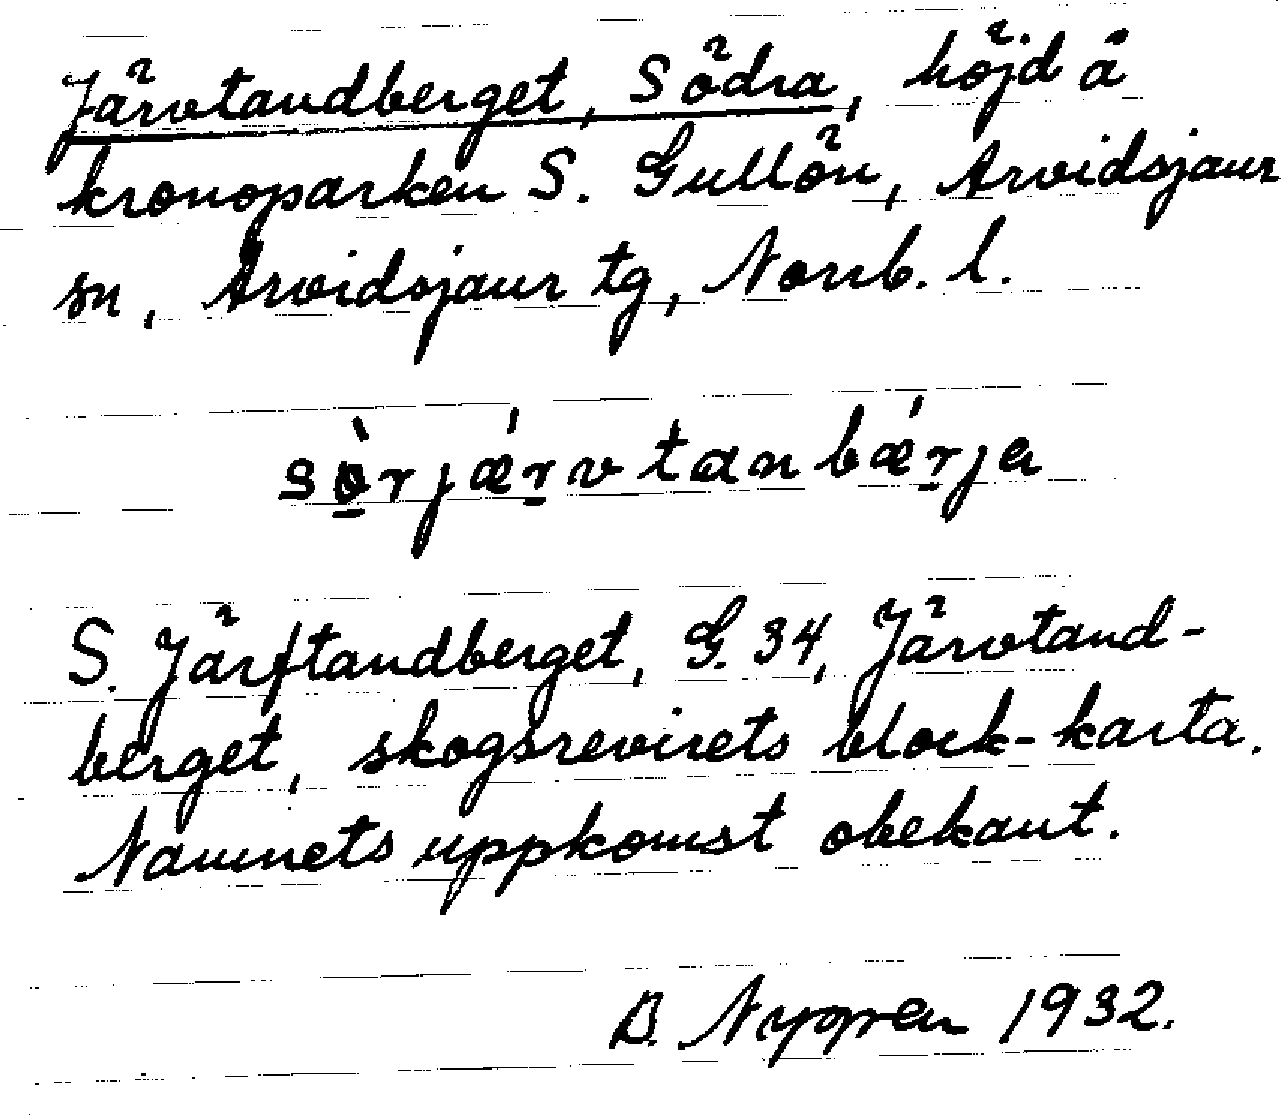 Järvtandberget, Södra, höjd å
kronoparken S. Gullön, Arvidsjaur
sn, Arvidsjaur tg, Norrb. l.
sö̀rjǽrvtanbǽrja
S. Järftandberget, G. 34, Järvtand-
berget, skogsrevirets block-karta.
Namnets uppkomst obekant.
B. Nyppen 1932.